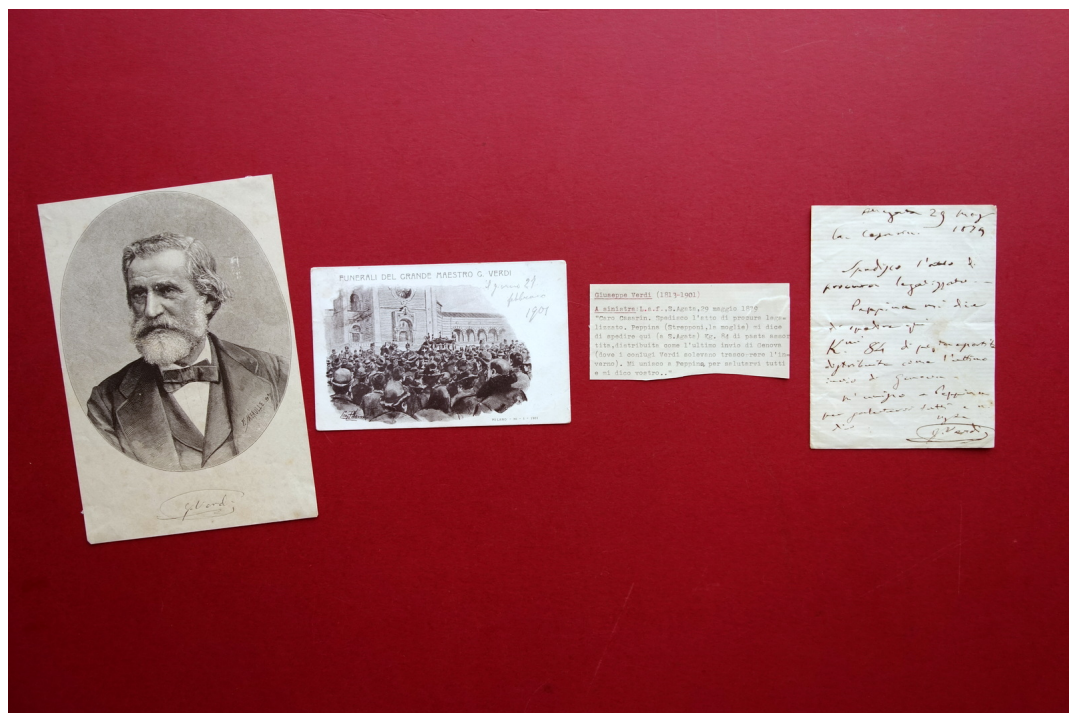 G. Verdi
FUNERALI DEL GRANDE MAESTRO G. VERDI
Il giorno 21
febbraio
1901
Giuseppe Verdi (1813-1901)
A sinistra:L.a.f.,S.Agata,29 maggio 1879
"Caro Casarin. Spedisco l'atto di procura lega-
lizzato. Peppina (Strepponi,la moglie) mi dice
di spedire qui (a S.Agata) Kg. 84 di pasta assor
tita,distribuita come l'ultimo invio di Genova
(dove i coniugi Verdi solevano trascorrere l'in-
verno). Mi unisco a Peppina per salutarvi tutti
e mi dico vostro.."
29
1879
Spedisco l'atto di
procura legalizzato
Peppina mi dice
di spedire qui
K. 84 di
distribuita come l'ultimo
invio di Genova
Mi unisco a Peppina
per salutarvi tutti e mi
dico
G. Verdi